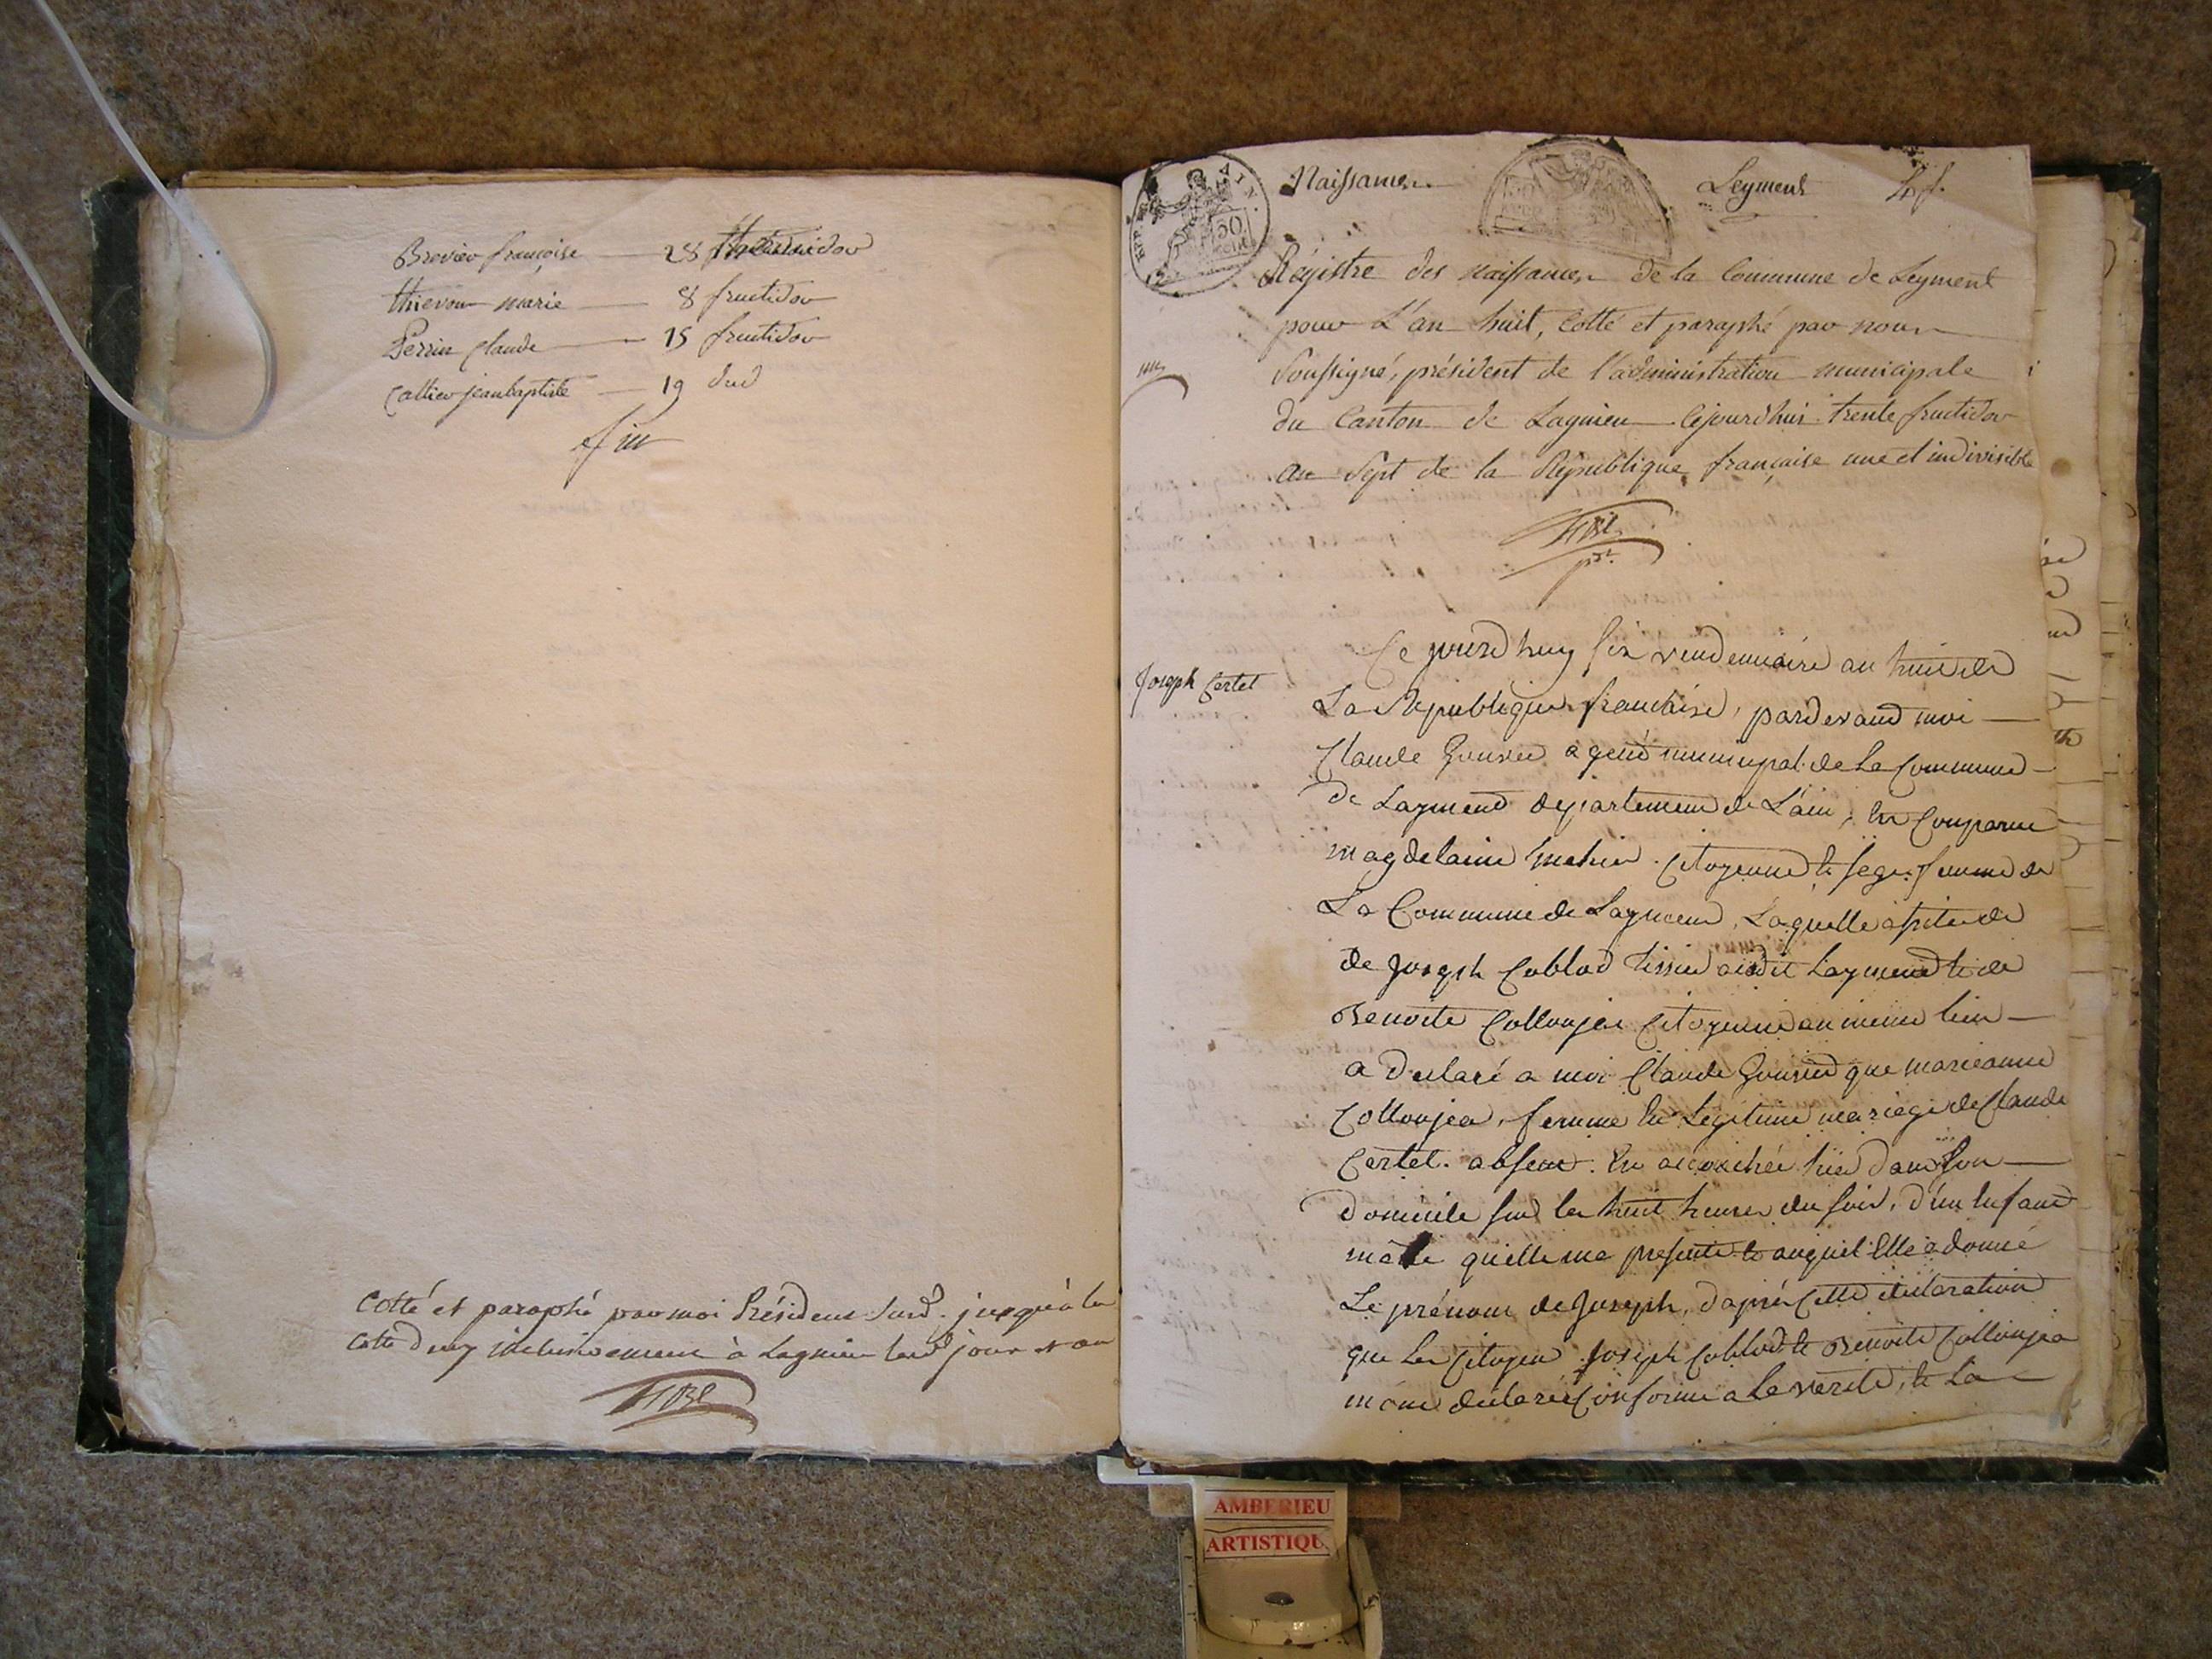 Brevier françoise — 28 thermidor
thievon marie — 8 fructidor
Perrin Claude — 15 fructidor
Callier jean baptiste — 19 dud
fin
Cotté et paraphé par moi Président susd. jusqu'à la
cotte inclusivement à Lagnieu lesd jour et an
Naissances Leyment
Régistre des naissances de la Commune de Leyment
pour L'an huit, Cotté et paraphé par nous
Soussigné, président de l'administration municipale
du Canton de Lagnieu Cejourdhui trente fructidor
an Sept de la République française une et indivisible
pdt.
Joseph Certet
Ce jourdhuy six vendemiaire an huit de
La Republique francaise, pardevand moi
Claude agend municipal de La Commune
de Laymend departement de L'ain, Est Comparue
magdelaine citoyenne et sage femme de
La Commune de Laymend, Laquelle assistée de
de Joseph Coblod audit Laymend et de
Benoite Collonjea Citoyenne au meme lieu
a declaré a moi Claude que marieanne
Collonjea, femme En Legitime mariage de Claude
Certet absent. Est accouchée hier dans son
domicile sur les huit heures du soir, d'un Enfant
mâle quelle ma presenté et auquel Elle a donné
Le prénom de Joseph, d'après Cette déclaration
que Les Citoyen Joseph Coblod et Benoite Collonjea
mont déclarée Conforme a La verité, et La
AMBERIEU
ARTISTIQU